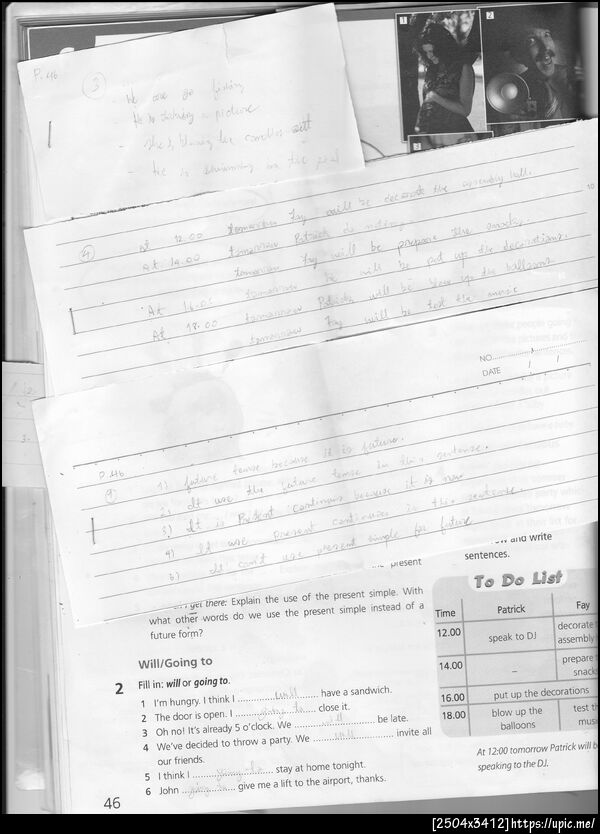 P.46
3
- We are go fishing
- He is taking a picture
- She is blowing the candles out
- He is swimming in the pool
1
2
3
4
At 12.00 tomorrow Fay will be decorate the assembly hall.
At 14.00 tomorrow Patrick do nothing
tomorrow Fay will be prepare the snacks.
At 16.00 tomorrow he will be put up the decorations.
At 18.00 tomorrow Patrick will be blow up the balloons
tomorrow Fay will be test the music
10
NO.
DATE / /
P.46
1) future tense because it is future.
2) It use the future tense in this sentence.
3) It is Present Continuous because it is now
4) It use present continuous in the sentence
5) It can't use present simple for future
the present
get there: Explain the use of the present simple. With
what other words do we use the present simple instead of a
future form?
Will/Going to
2 Fill in: will or going to.
1 I'm hungry. I think I will have a sandwich.
2 The door is open. I going to close it.
3 Oh no! It's already 5 o'clock. We will be late.
4 We've decided to throw a party. We will invite all
our friends.
5 I think I going to stay at home tonight.
6 John going to give me a lift to the airport, thanks.
46
and write
sentences.
To Do List
Time Patrick Fay
12.00 speak to DJ decorate
assembly
14.00 – prepare
snack
16.00 put up the decorations
18.00 blow up the balloons test th
musi
At 12:00 tomorrow Patrick will b
speaking to the DJ.
[2504x3412]https://upic.me/